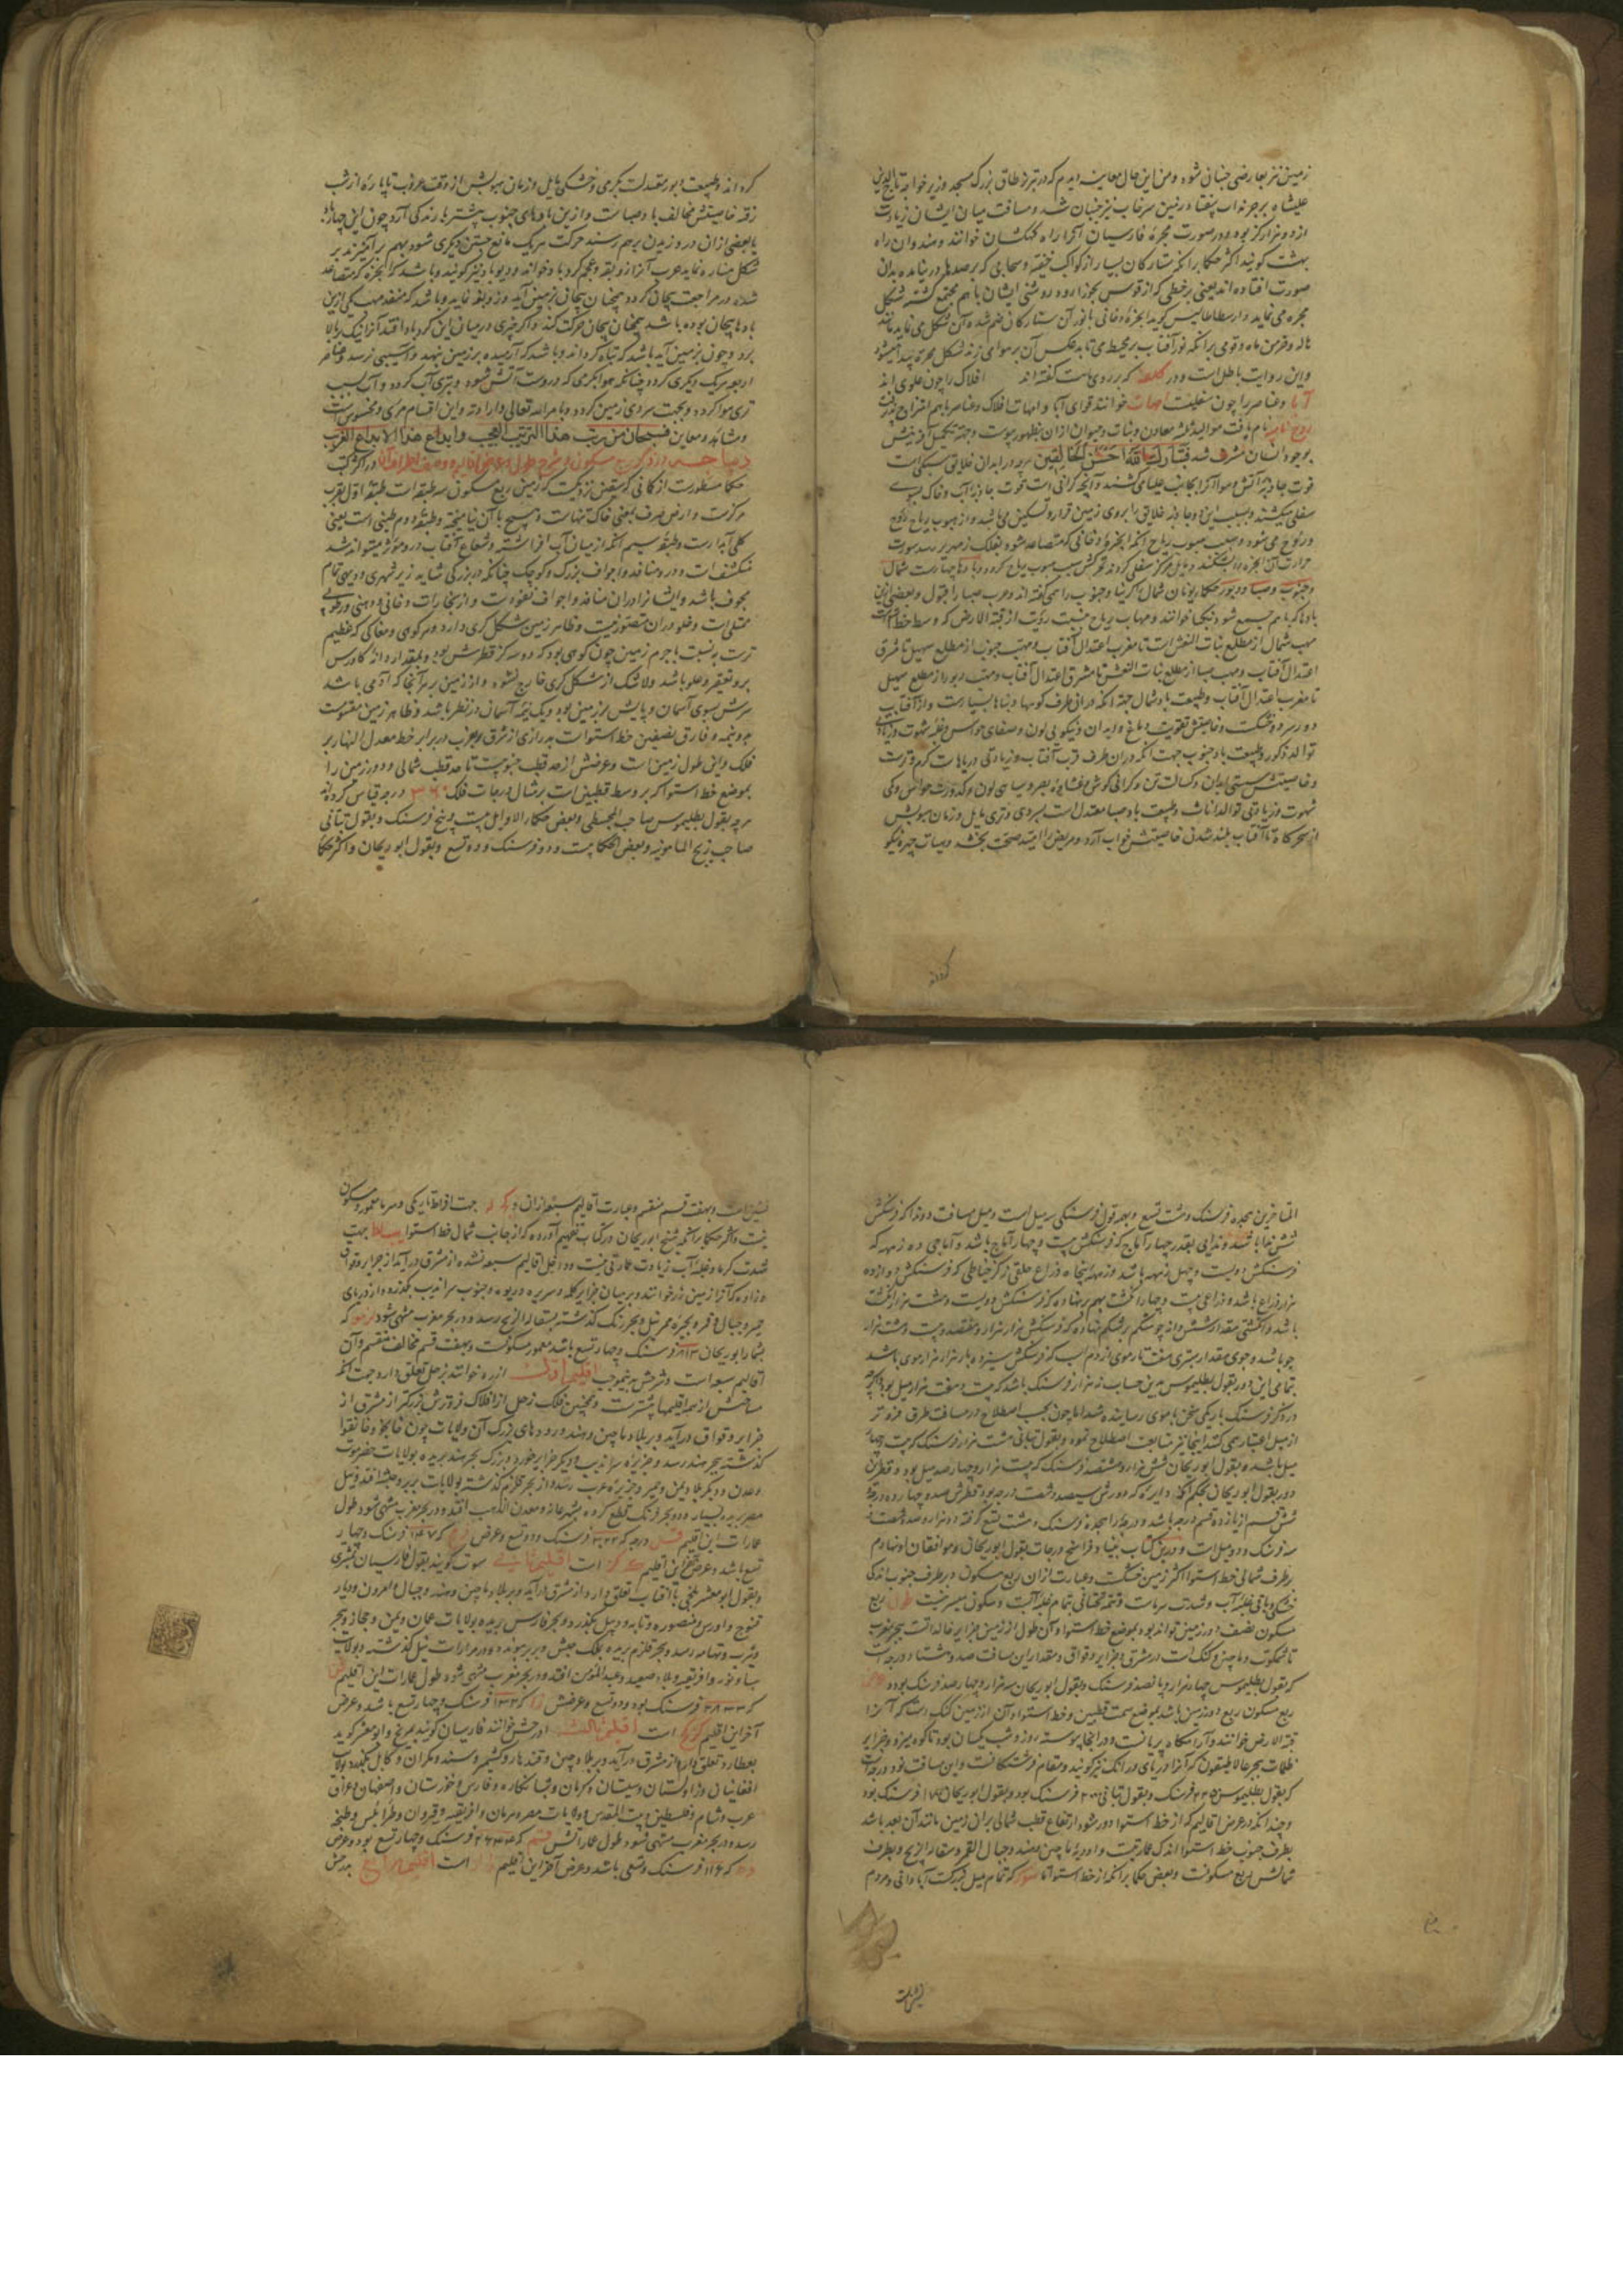 زمین نیز بعارضی جنبانی شود و من این حال معاینه دیدم که در تبریز طاق بزرگ مسجد وزیر خواجه تاج الدین
علیشاه
از دو هزار کز بوده و در صورت مجره فارسیان آنرا راه کهکشان خوانند و هندوان راه
بهشت کویند اکثر حکما برانکه ستارکان بسیار از کواکب خفیه و سحابی که بر صد
صورت افتاده اند یعنی بر خطی که از قوس بجوزا رود روشنی ایشان باهم مجتمع کشته شکل
مجره می نماید و ارسطاطالیس کوید ابخرهٔ دخانی با نور آن ستارکان ضم شده آن شکل می نماید مانند
هاله و خرمن ماه و قومی برانکه نور آفتاب بر محیط می تابد عکس آن بر هوا می زند شکل مجره پیدا میشود
و این روایت باطل است و در که بر روی ماست کفته اند افلاک را چون علوی اند
آبا و عناصر را چون سفلیت امهات خوانند قوای آبا و امهات افلاک و عناصر باهم امتزاج
نام یافت موالید ثلثه معادن و نبات و حیوان ازان بظهور پیوست و جهة تکمیل آفرینش
بوجود انسان مشرف شد فتبارک الله احسن الخالقین هر چه در ابدان خلایق سبکی است
قوت جاذبه آتش و هوا آنرا بجانب علیا می کشند و آنچه کرانی است قوت جاذبه آب و خاک بسوی
سفلی میکشند و بسبب این دو جاذبه خلایق را بر روی زمین قرار و تسکین می باشد و از هبوب ریاح
می شود و سبب هبوب ریاح انکه ابخره و دخانی که متصاعد شود بفلک زمهریر رسد سورت
حرارت آن ابخره را بشکند و مایل مرکز سفلی کردند تحرکش سبب هبوب ریاح کردد و بادها چهارست شمال
و جنوب و صبا و دبور حکماء یونان شمال را کربنا و جنوب را همی کفته اند و عرب صبا را قبول و بعضی ازین
بادها که باهم جمع شود نکبا خوانند و مهاب ریاح نسبت رؤیت از قبة الارض که وسط خط استواست
مهب شمال از مطلع بنات النعش است تا مغرب اعتدال آفتاب و مهب جنوب از مطلع سهیل تا مشرق
اعتدال آفتاب و مهب صبا از مطلع بنات النعش تا مشرق اعتدال آفتاب و مهب دبور از مطلع سهیل
تا مغرب اعتدال آفتاب و طبیعت باد شمال جهة انکه دران طرف کوهها و بناها بسیارست و از آفتاب
دور سرد و خشکست و خاصیتش تقویت دماغ و ابدان و نیکویی لون و صفای حواس و غلبه شهوت و زیادتی
توالد ذکور و طبیعت باد جنوب جهت انکه دران طرف قرب آفتاب و زیادتی دریاهاست کرم و ترست
و خاصیتش سستی ابدان و کسالت تن و کرانی کوش و غشاوهٔ بصر و سیاهی لون و کدورت حواس و کمی
شهوت و زیادتی توالد اناث و طبیعت باد صبا معتدل است بسردی و تری مایل و زمان هبوبش
از سحرکاه تا آفتاب بلند شدن خاصیتش خواب آرد و مریض را امید صحت بخشد و هیات چهره نیکو
کرداند
کرداند و طبیعت دبور معتدلست بکرمی و خشکی مایل و زمان هبوبش از وقت غروب تا پاره از شب
رفته خاصیتش مخالف باد صباست و ازین بادهای جنوب پیشتر بارندکی آرد و چون این چهار باد
یا بعضی ازان در وزیدن برهم رسند حرکت هریک مانع جستن دیکری شود بهم برآمیزند بر
شکل مناره نماید عرب آنرا زوبعه و عجم کردباد خوانند و دیوباد نیز کویند و باشد که ابخره که متصاعد
شده در مراجعت پیچان کردد همچنان پیچان بزمین آید و زوبعه نماید و باشد که منفذ مهب یکی ازین
بادها پیچان بوده باشد همچنان پیچان حرکت کند و اکر چیزی در میان این کردباد افتد آنرا نیک ببالا
برد و چون بزمین آید باشد که تباه کرداند و باشد که آرمیده بر زمین نهد و آسیبی نرسد و عناصر
اربعه هریک دیکری کردد چنانکه هوا بکرمی که دروست آتش شود و بتری آب کردد و آب بسبب
تری هوا کردد و بجهت سردی زمین کردد و بامر الله تعالی و ارادته و این اقسام مرئی و محسوس است
و مشاهد و معاین فسبحان من رتب هذا الترتیب العجیب و ابداع هذا الابداع الغریب
دیباجه در ذکر ربع مسکون و شرح طول و عرض اقالیم و وصف اطراف آن در اکثر کتب
حکما مسطورست از کانی که بیقین نزدیکست که زمین ربع مسکون سه طبقه است طبقه اول بقرب
مرکزست و ارض صرف یعنی خاک تنهاست و هیچ با آن نیامیخته و طبقه دوم طینی است یعنی
کلی آبدارست و طبقه سیم انکه از میان آب افراشته و شعاع آفتاب درو مؤثر میتواند شد
منکشف است و درو منافذ و اجواف بزرک و کوچک چنانکه در بزرکی شاید زیر شهری و دیهی تمام
مجوف باشد و انسانرا در آن منافذ و اجواف نفوذست و از بخارات دخانی و دهنی و رطوبی
ممتلی است و خلو دران متصور نیست و ظاهر زمین شکل کری دارد و هر کوهی و مغاکی که عظیم
ترست بنسبت با جرم زمین چون کوهی بود که دو سه کز قطرش بود و بمقدار دانه کاورس
برو تقعیر و علو باشد و لاشک از شکل کری خارج نشود و از زمین بر هرآنجا که آدمی باشد
سرش بسوی آسمان و پایش بر زمین بود و یک نیمه آسمان در نظر باشد و ظاهر زمین مقسومست
بدو نیمه و فارق نصفین خط استواست بدرازی از شرق و غرب در برابر خط معدل النهار بر
فلک و این طول زمین است و عرضش از حد قطب جنوبیست تا حد قطب شمالی و دور زمین را
بموضع خط استوا که بر وسط قطبین است بر مثال درجات فلک ٣٦٠ درجه قیاس کرده اند
هر درجه بقول بطلیموس صاحب المجسطی و بعضی حکماء الاوایل بیست و پنج فرسنک و بقول بتانی
صاحب زیج المامونیه و بعضی الحکما بیست و دو فرسنک و دو تسع و بقول ابوریحان و اکثر حکماء
المتاخرین هجده فرسنک و هشت تسع و همه قول فرسنکی سه میل است و میل مسافت دو نداء که فرسنکش
شش ندا باشد و ندایی بقدر چهار آماج که فرسنکش بیست و چهار آماج باشد و آماجی ده زمهه که
فرسنکش دویست و چهل زمهه باشد و زمهه پنجاه ذراع خلقی ز کز خیاطی که فرسنکش دوازده
هزار ذراع باشد و ذراعی بیست و چهار انکشت بهم بر نهاده که فرسنکش دویست و هشت هزار انکشت
باشد و انکشتی مقدار شش دانه جو شکم بر شکم نهاده که فرسنکش هزار هزار و هفتصد و بیست و هشت هزار
جو باشد و جوی مقدار سبری هفت تار موی از دم اسب که فرسنکش سیزده بار هزار هزار موی باشد
بتمامی این دور بقول بطلیموس بدین حساب نه هزار فرسنک باشد که بیست و هفت هزار میل بود و اکرچه
در ذکر فرسنک باریکی سخن تا موی رسانیده شد اما چون بحسب اصطلاح در مسافت طرق فروتر
از میل اعتبار نمی کنند اینجا نیز متابعت اصطلاح نمود و بقول بتانی هشت هزار فرسنک که بیست و چهار
میل باشد و بقول ابوریحان شش هزار و هشتصد فرسنک که بیست هزار و چهارصد میل بود و قطر این
دور بقول ابوریحان بحکم آنکه دایره که دورش سیصد و شصت درجه بود قطرش صد و چهارده درجه
شش قسم از یازده قسم درجه باشد و درجه را هجده فرسنک و هشت تسع کرفته دو هزار و صد و شصت و
سه فرسنک و دو میل است و درین کتاب بنیاد فراسخ درجات بقول ابوریحان و موافقان او نهادم
بر طرف شمالی خط استوا اکثر زمین خشکست و عبارت ازان ربع مسکون و بر طرف جنوب اندکی
خشکی و باقی غلبه آب و شدت سرماست و تحت تحتانی تمام غلبه آبست و سکون میسر نیست طول ربع
مسکون نصف دور زمین تواند بود بموضع خط استوا و آن طول از زمین جزایر خالداتست ببحر مغرب
تا شمکوت و ماچین و کنک است در مشرق و جزایر وقواق و مقدار این مسافت صد و هشتاد درجه است
که بقول بطلیموس چهار هزار و پانصد فرسنک و بقول ابوریحان سه هزار و چهارصد فرسنک بود و عرض
ربع مسکون ربع دور زمین باشد بموضع سمت قطبین و خط استوا و آن از زمین کنک دست که آنرا
قبة الارض خوانند و آرامکاه پریانست و در آنجا پیوسته روز و شب یکسان بود تا کوه میزو و جزایر
ظلمات ببحر غالاطیقون که آنرا دریای ورانک نیز کویند و مقام فرشتکانست و این مسافت نود درجه است
که بقول بطلیموس ٢٢٥٠ فرسنک و بقول بتانی ٢٠٠٠ فرسنک بود و بقول ابوریحان ١٧٠٠ فرسنک بود
و چندانکه در عرض اقالیم که از خط استوا دور شود ارتفاع قطب شمالی بران زمین مانند آن بعد باشد
بطرف جنوب خط استوا اندک عمارتیست و اودیهٔ ماچین و هند و جبال القمر و سفاله الزنج و بطرف
شمالش ربع مسکونست و بعضی حکما برانکه از خط استوا تا که تمام میل بزرکست آبادانی و مردم
نشین است
نشین است و بهفت قسم منقسم و عبارت اقالیم سبعه ازان و جهت افراط تاریکی و سرما معمور و مسکون
نیست و اکثر حکما برانکه شیخ ابوریحان در کتاب تفهیم آورده که از جانب شمال خط استوا جهت
شدت کرما و غلبه آب زیادت عمارتی نیست و داخل اقالیم سبعه نشده از مشرق درآید از جزایر وقواق
و زاوه که آنرا زمین زر خوانند و بر میان جزایر کله و سریره و دریوه و جنوب سراندیب بکذرد و از دریای
حمیر و جبال و قمر و بحیره ممر نیل و بحر زنک کذشته بسفاله الزنج رسد و در بحر مغرب منتهی شود که
بشمار ابوریحان فرسنک و چهار تسع باشد معمور مسکونست و بهفت قسم مخالف منقسم و آن
اقالیم سبعه است و شرحش بدین موجب اقلیم اول ازره خوانند بزحل تعلق دارد جهت انکه
مساحتش از همه اقلیمها بیشترست و همچنین فلک زحل از افلاک فروترش بزرکتر از مشرق از
جزایر وقواق درآید و بر بلاد ماچین و هند و رودهای بزرک آن ولایات چون خانجو و خانقوا
کذشته ببحر هند رسد و جزیره سراندیب و دیکر جزایر خورد و بزرک بحر هند بریده بولایات حضرموت
و عدن و دیکر بلاد یمن و حمیر و جزیره عرب رسد و از بحر قلزم کذشته بولایات بربر و حبشه افتد و نیل
مصر بریده بسیار و دو بحر فرنک قطع کرده بشهر غانه و معدن الذهب افتد و در بحر مغرب منتهی شود طول
عمارات این اقلیم درجه که فرسنک و دو تسع و عرض که ١٤٧ فرسنک و چهار
تسع باشد و عرض آخر این اقلیم است اقلیم ثانی سوت کویند بقول فارسیان بمشتری
و بقول ابو معشر بلخی بآفتاب تعلق دارد و از مشرق درآید و بر بلاد ماچین و هند و جبال قامرون و دیار
قنوج و اورس و منصوره و تانه و دیبل بکذرد و بحر فارس بریده بولایات عمان و یمن و حجاز و بحر
و یثرب و تهامه رسد و بحر قلزم بریده بملک حبش و بربر پیوندد و در مرارات نیل کذشته و بولایت
ساه و نور و افریقیه و بلاد صعید و عبدالمؤمن افتد و در بحر مغرب منتهی شود طول عمارات این اقلیم
که فرسنک بود و دو تسع و عرضش که ١٣٢ فرسنک و چهار تسع باشد و عرض
آخر این اقلیم است اقلیم ثالث اورش خوانند فارسیان کویند بمریخ و ابو معشر کوید
بعطارد تعلق دارد از مشرق درآید و بر بلاد چین و قندهار و کشمیر و سند و مکران و کابل بکذرد بولایت
افغانیان و زاولستان و سیستان و کرمان و شبانکاره و فارس و خوزستان و اصفهان و عراق
عرب و شام و فلسطین و بیت المقدس و ولایات مصر و هرمان و افریقیه و قیروان و طرابلس و طنجه
رسد و در بحر مغرب منتهی شود طول عماراتش که فرسنک و چهار تسع بود و عرض
که ١١٦ فرسنک و تسعی باشد و عرض آخر این اقلیم است اقلیم رابع بدرخش